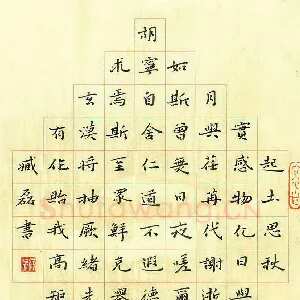 起土思秋
實感物化日與
月與荏苒代謝逝
如斯曾無日夜嗟爾
胡寧自舍仁道不遐德
焉斯至眾鮮克舉
玄漠將抽厥緒先
有作貽我高矩
臧磊書